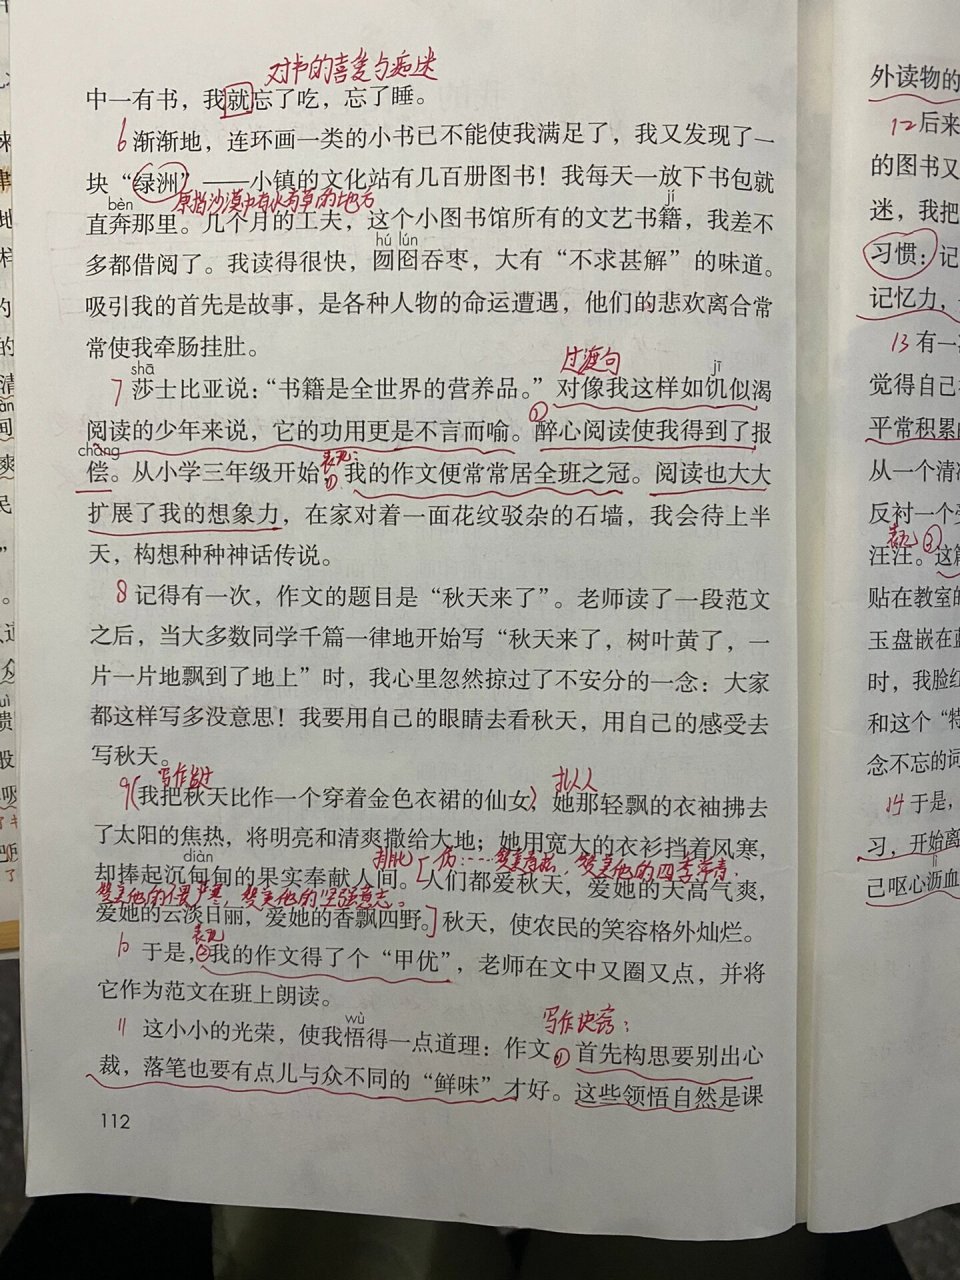 对书的喜爱与痴迷
中一有书，我就忘了吃，忘了睡。
6 渐渐地，连环画一类的小书已不能使我满足了，我又发现了一
块“绿洲”——小镇的文化站有几百册图书！我每天一放下书包就
原指沙漠中有水有草的地方
bèn jí
直奔那里。几个月的工夫，这个小图书馆所有的文艺书籍，我差不
hú lún
多都借阅了。我读得很快，囫囵吞枣，大有“不求甚解”的味道。
吸引我的首先是故事，是各种人物的命运遭遇，他们的悲欢离合常
常使我牵肠挂肚。
过渡句
shā jī
7 莎士比亚说：“书籍是全世界的营养品。”对像我这样如饥似渴
阅读的少年来说，它的功用更是不言而喻。①醉心阅读使我得到了报
cháng 表现：
偿。从小学三年级开始①，我的作文便常常居全班之冠。阅读也大大
扩展了我的想象力，在家对着一面花纹驳杂的石墙，我会待上半
天，构想种种神话传说。
8 记得有一次，作文的题目是“秋天来了”。老师读了一段范文
之后，当大多数同学千篇一律地开始写“秋天来了，树叶黄了，一
片一片地飘到了地上”时，我心里忽然掠过了不安分的一念：大家
都这样写多没意思！我要用自己的眼睛去看秋天，用自己的感受去
写秋天。
拟人
9（我把秋天比作一个穿着金色衣裙的仙女），她那轻飘的衣袖拂去
了太阳的焦热，将明亮和清爽撒给大地；她用宽大的衣衫挡着风寒，
diàn 排比
却捧起沉甸甸的果实奉献人间。[人们都爱秋天，爱她的天高气爽，
赞美他的不畏严寒，赞美他的坚强意志。
爱她的云淡日丽，爱她的香飘四野。]秋天，使农民的笑容格外灿烂。
表现
10 于是，②我的作文得了个“甲优”，老师在文中又圈又点，并将
它作为范文在班上朗读。
wù 写作诀窍：
11 这小小的光荣，使我悟得一点道理：作文①，首先构思要别出心
裁，落笔也要有点儿与众不同的“鲜味”才好。这些领悟自然是课
112
外读物的
12 后来
的图书又
迷，我把
习惯：记
记忆力，
13 有一
觉得自己
平常积累
从一个清
反衬一个
表现③
汪汪。这篇
贴在教室的
玉盘嵌在
时，我脸红
和这个“特
念不忘的词
14 于是，
习，开始离
lì
己呕心沥血